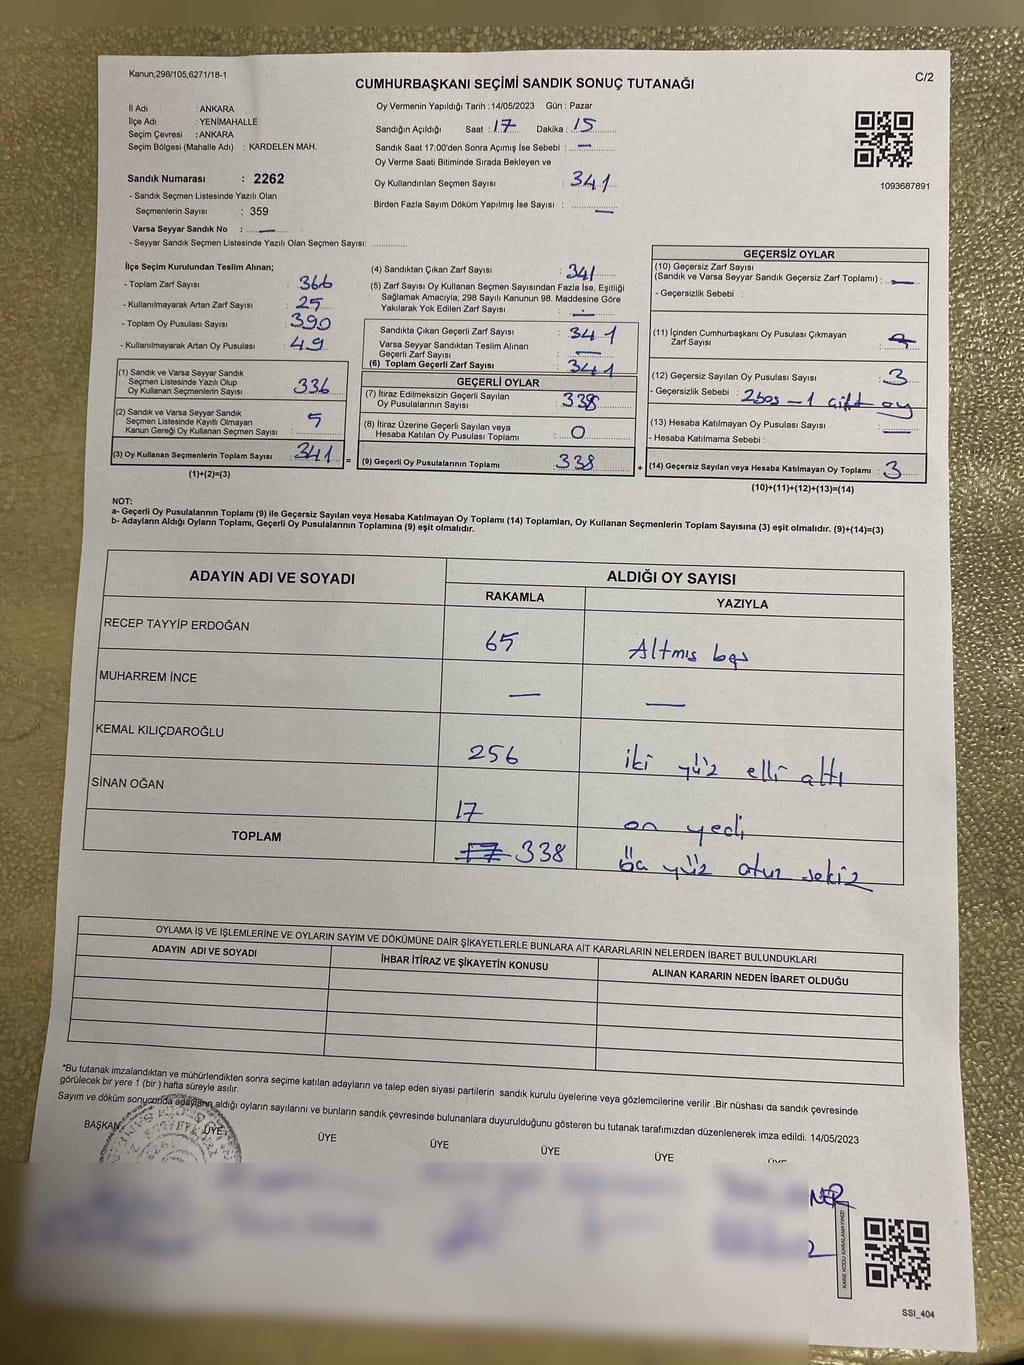 Kanun;298/105,6271/18-1
C/2
CUMHURBAŞKANI SEÇİMİ SANDIK SONUÇ TUTANAĞI
İl Adı : ANKARA
İlçe Adı : YENİMAHALLE
Seçim Çevresi : ANKARA
Seçim Bölgesi (Mahalle Adı) : KARDELEN MAH.
Sandık Numarası : 2262
- Sandık Seçmen Listesinde Yazılı Olan
Seçmenlerin Sayısı : 359
Varsa Seyyar Sandık No : —
- Seyyar Sandık Seçmen Listesinde Yazılı Olan Seçmen Sayısı: ............
Oy Vermenin Yapıldığı Tarih : 14/05/2023 Gün : Pazar
Sandığın Açıldığı Saat : 17 Dakika : 15
Sandık Saat 17:00'den Sonra Açımış İse Sebebi : —
Oy Verme Saati Bitiminde Sırada Bekleyen ve
Oy Kullandırılan Seçmen Sayısı : 341
Birden Fazla Sayım Döküm Yapılmış İse Sayısı : —
1093687891
İlçe Seçim Kurulundan Teslim Alınan;
- Toplam Zarf Sayısı : 366
- Kullanılmayarak Artan Zarf Sayısı : 25
- Toplam Oy Pusulası Sayısı : 390
- Kullanılmayarak Artan Oy Pusulası : 49
(1) Sandık ve Varsa Seyyar Sandık
Seçmen Listesinde Yazılı Olup
Oy Kullanan Seçmenlerin Sayısı 336
(2) Sandık ve Varsa Seyyar Sandık
Seçmen Listesinde Kayıtlı Olmayan
Kanun Gereği Oy Kullanan Seçmen Sayısı 5
(3) Oy Kullanan Seçmenlerin Toplam Sayısı 341
(1)+(2)=(3)
(4) Sandıktan Çıkan Zarf Sayısı : 341
(5) Zarf Sayısı Oy Kullanan Seçmen Sayısından Fazla İse, Eşitliği
Sağlamak Amacıyla; 298 Sayılı Kanunun 98. Maddesine Göre
Yakılarak Yok Edilen Zarf Sayısı : —
Sandıkta Çıkan Geçerli Zarf Sayısı : 341
Varsa Seyyar Sandıktan Teslim Alınan
Geçerli Zarf Sayısı : —
(6) Toplam Geçerli Zarf Sayısı : 341
GEÇERLİ OYLAR
(7) İtiraz Edilmeksizin Geçerli Sayılan
Oy Pusulalarının Sayısı : 338
(8) İtiraz Üzerine Geçerli Sayılan veya
Hesaba Katılan Oy Pusulası Toplamı : 0
= (9) Geçerli Oy Pusulalarının Toplamı : 338 +
GEÇERSİZ OYLAR
(10) Geçersiz Zarf Sayısı
(Sandık ve Varsa Seyyar Sandık Geçersiz Zarf Toplamı) : —
- Geçersizlik Sebebi :
(11) İçinden Cumhurbaşkanı Oy Pusulası Çıkmayan
Zarf Sayısı :
(12) Geçersiz Sayılan Oy Pusulası Sayısı : 3
- Geçersizlik Sebebi : 2 boş — 1 çift oy
(13) Hesaba Katılmayan Oy Pusulası Sayısı : —
- Hesaba Katılmama Sebebi :
(14) Geçersiz Sayılan veya Hesaba Katılmayan Oy Toplamı : 3
(10)+(11)+(12)+(13)=(14)
NOT:
a- Geçerli Oy Pusulalarının Toplamı (9) ile Geçersiz Sayılan veya Hesaba Katılmayan Oy Toplamı (14) Toplamları, Oy Kullanan Seçmenlerin Toplam Sayısına (3) eşit olmalıdır. (9)+(14)=(3)
b- Adayların Aldığı Oyların Toplamı, Geçerli Oy Pusulalarının Toplamına (9) eşit olmalıdır.
ADAYIN ADI VE SOYADI ALDIĞI OY SAYISI
RAKAMLA YAZIYLA
RECEP TAYYİP ERDOĞAN 65 Altmış beş
MUHARREM İNCE — —
KEMAL KILIÇDAROĞLU 256 iki yüz elli altı
SİNAN OĞAN 17 on yedi
TOPLAM 17 338 yüz otuz sekiz
OYLAMA İŞ VE İŞLEMLERİNE VE OYLARIN SAYIM VE DÖKÜMÜNE DAİR ŞİKAYETLERLE BUNLARA AİT KARARLARIN NELERDEN İBARET BULUNDUKLARI
ADAYIN ADI VE SOYADI İHBAR İTİRAZ VE ŞİKAYETİN KONUSU ALINAN KARARIN NEDEN İBARET OLDUĞU
*Bu tutanak imzalandıktan ve mühürlendikten sonra seçime katılan adayların ve talep eden siyasi partilerin sandık kurulu üyelerine veya gözlemcilerine verilir .Bir nüshası da sandık çevresinde
görülecek bir yere 1 (bir ) hafta süreyle asılır.
Sayım ve döküm sonucunda adayların aldığı oyların sayılarını ve bunların sandık çevresinde bulunanlara duyurulduğunu gösteren bu tutanak tarafımızdan düzenlenerek imza edildi. 14/05/2023
BAŞKAN ÜYE ÜYE ÜYE ÜYE ÜYE
NER
KARE KODU KARALAMAYINIZ!
SSI_404